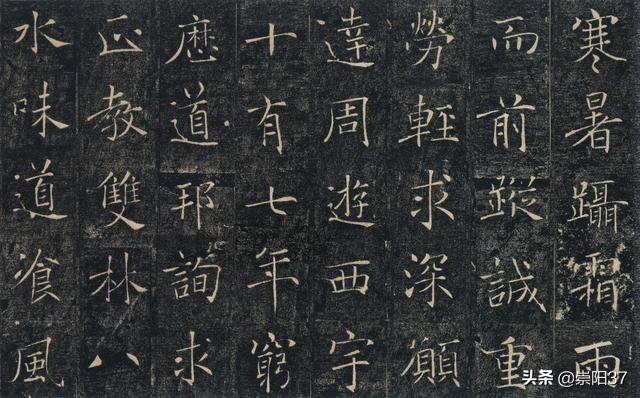 寒暑躡霜雨
而前蹤誠重
勞輕求深願
達周遊西宇
十有七年窮
歷道邦詢求
正教雙林八
水味道飡風
头条 @崇阳37